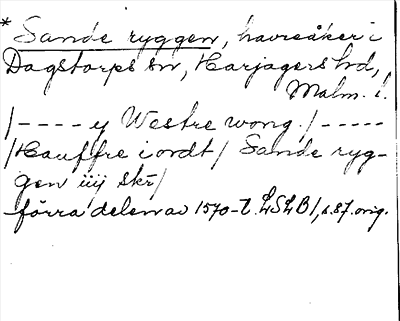 * Sande ryggen, havreåker i
Dagstorps sn, Harjagers hd,
Malm. l.
/---- y Westre wong./-----
/Hauffre i ordt/ Sande ryg-
gen iiij skr/
förra delen av 1570-t. LSLB1, s.87. orig.